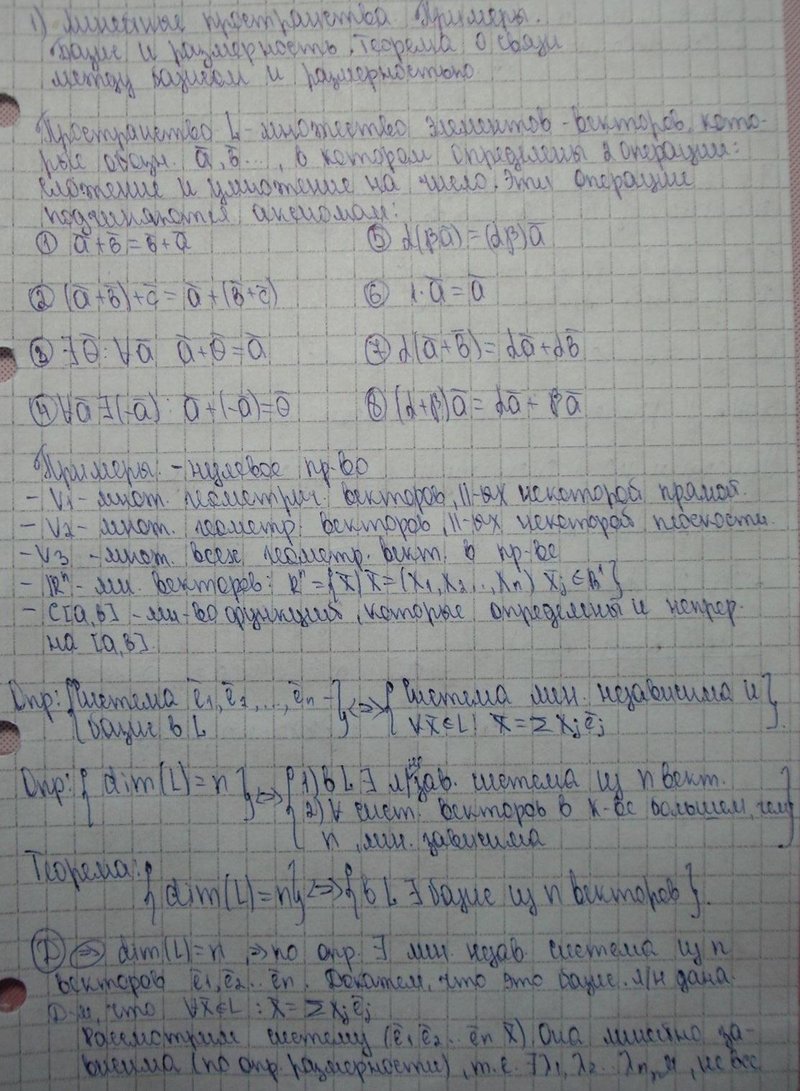 1) Линейные пространства. Примеры.
Базис и размерность. Теорема о связи
между базисом и размерностью
Пространство L - множество элементов - векторов, кото-
рые обозн. a̅, b̅ ..., в котором определены 2 операции:
сложение и умножение на число. Эти операции
подчиняются аксиомам:
① a̅+b̅=b̅+a̅ ⑤ α(βa̅)=(αβ)a̅
② (a̅+b̅)+c̅=a̅+(b̅+c̅) ⑥ 1·a̅=a̅
③ ∃θ̅: ∀a̅ a̅+θ̅=a̅ ⑦ α(a̅+b̅)=αa̅+αb̅
④ ∀a̅ ∃(-a̅): a̅+(-a̅)=θ̅ ⑧ (α+β)a̅=αa̅+βa̅
Примеры: - нулевое пр-во
- V1 - множ. геометрич. векторов, ||-ых некоторой прямой.
- V2 - множ. геометр. векторов, ||-ых некоторой плоскости.
- V3 - множ. всех геометр. вект. в пр-ве
- ℝⁿ - мн. векторов: ℝⁿ={x̅|x̅=(x1,x2..,xn) xj∈ℝ¹}
- C[a,b] - мн-во функций, которые определены и непрер.
на [a,b].
Опр: {Система e̅1, e̅2, ..., e̅n - } <=> {Система лин. независима и }
{базис в L } <=> {∀x̅∈L: x̅=Σxje̅j }.
Опр: { dim(L)=n } <=> { 1) в L ∃ л/незав. система из n вект.
2) ∀ сист. векторов в к-ве большем, чем
n, лин. зависима }
Теорема: {dim(L)=n} <=> {в L ∃ базис из n векторов}.
Д => dim(L)=n, => по опр. ∃ лин. незав. система из n
векторов e̅1, e̅2.. e̅n. Докажем, что это базис. л/н дана.
Д-м, что ∀x̅∈L: x̅=Σxje̅j
Рассмотрим систему (e̅1 e̅2.. e̅n x̅). Она линейно за-
висима (по опр. размерности), т.е. ∃λ1, λ2.. λn, μ, не все